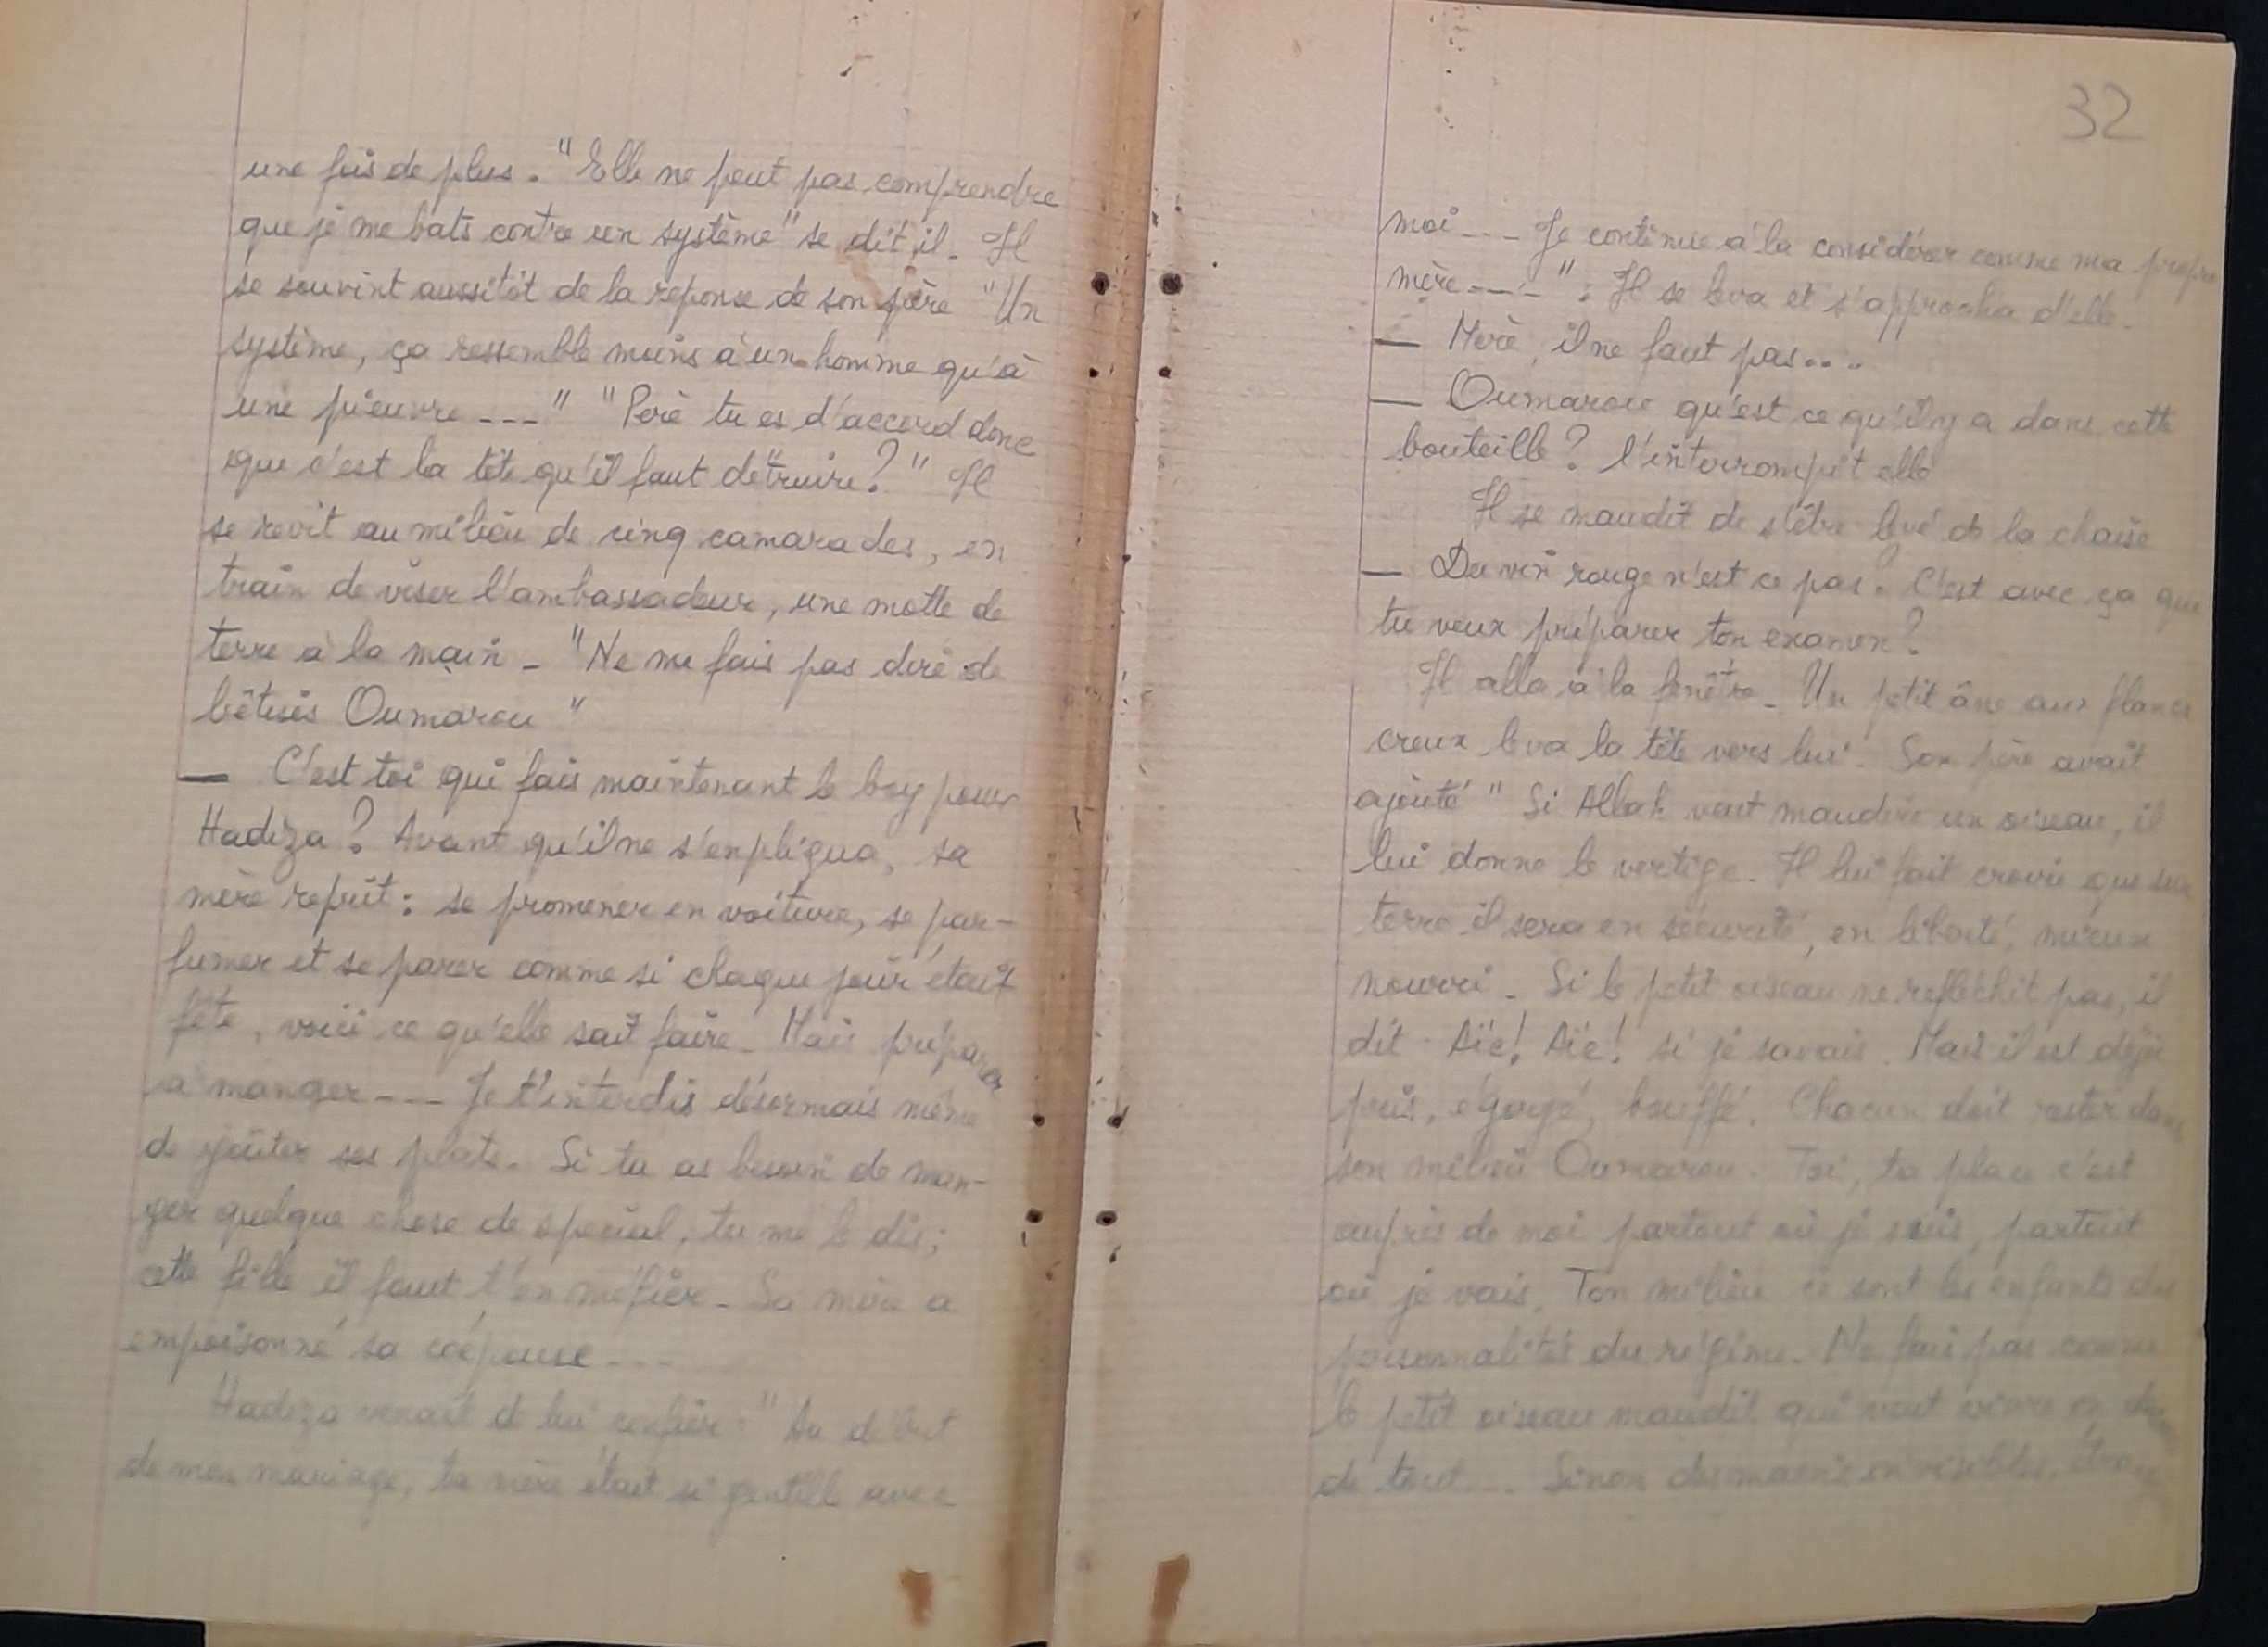 une fois de plus. "Elle ne peut pas comprendre
que je me bats contre un système" se dit il. Il
se souvint aussitôt de la reponse de son père "Un
système, ça ressemble moins à un homme qu'à
une pieuvre ---" "Père tu es d'accord donc
que c'est la tête qu'il faut détruire?" Il
se revit au milieu de cinq camarades, en
train de viser l'ambassadeur, une motte de
terre à la main - "Ne me fais pas dire de
bêtises Oumarou"
— C'est toi qui fais maintenant le boy pour
Hadiza? Avant qu'il ne s'expliqua, sa
mère reprit: se promener en voiture, se par-
fumer et se parer comme si chaque jour était
fête, voici ce qu'elle sait faire. Mais préparer
à manger --- Je t'interdis désormais même
de goûter ses plats. Si tu as besoin de man-
ger quelque chose de special, tu me le dis;
cette fille il faut t'en méfier. Sa mère a
empoisonné sa coépouse ---
Hadiza venait de lui confier: "Au début
de mon mariage, ta mère était si gentille avec
32
moi --- Je continue à la considérer comme ma propre
mère ---". Il se leva et s'approcha d'elle.
— Mère, il ne faut pas....
— Oumarou qu'est ce qu'il y a dans cette
bouteille? l'interrompit elle
Il se maudit de s'être levé de la chaise
— Du vin rouge n'est ce pas? C'est avec ça que
tu veux préparer ton examen?
Il alla à la fenêtre. Un petit âne aux flancs
creux leva la tête vers lui. Son père avait
ajouté "Si Allah veut maudire un oiseau, il
lui donne le vertige. Il lui fait croire que sur
terre il sera en sécurité, en liberté, mieux
nourri. Si le petit oiseau ne reflechit pas, il
dit - Aïe! Aïe! si je savais. Mais il est déjà
pris, égorgé, bouffé. Chacun doit rester dans
son milieu Oumarou. Toi, ta place c'est
auprès de moi partout où je suis, partout
où je vais. Ton milieu ce sont les enfants des
personnalités du régime. Ne fais pas comme
le petit oiseau maudit qui veut vivre en
de tout --- Sinon des mains invisibles,